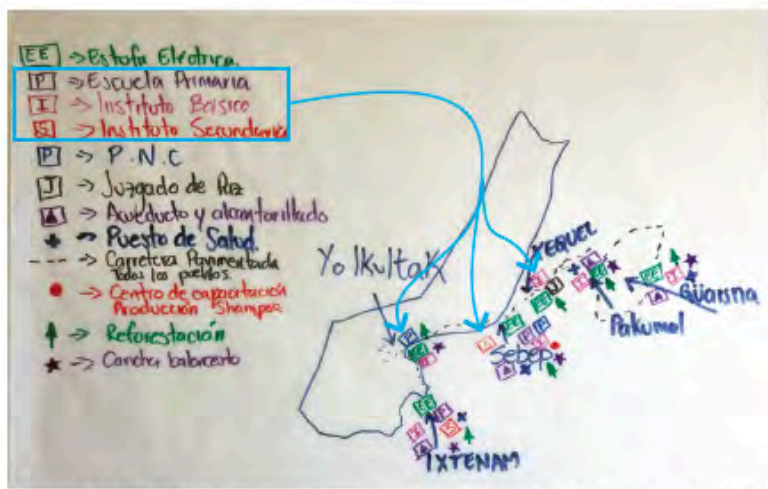 EE -> Estufa Eléctrica.
P -> Escuela Primaria
I -> Instituto Básico
S -> Instituto Secundario
P -> P.N.C
J -> Juzgado de Paz
-> Acueducto y alcantarillado
-> Puesto de Salud.
-> Carretera Pavimentada
Todos los pueblos.
-> Centro de capacitación
Producción Shampoo
-> Reforestación
-> Cancha baloncesto
Yolkultak
XEQUEL
Güarsna
Pakumal
Sebep
IXTENAM
EE
EE
EE
EE
EE
EE
J
P
P
S